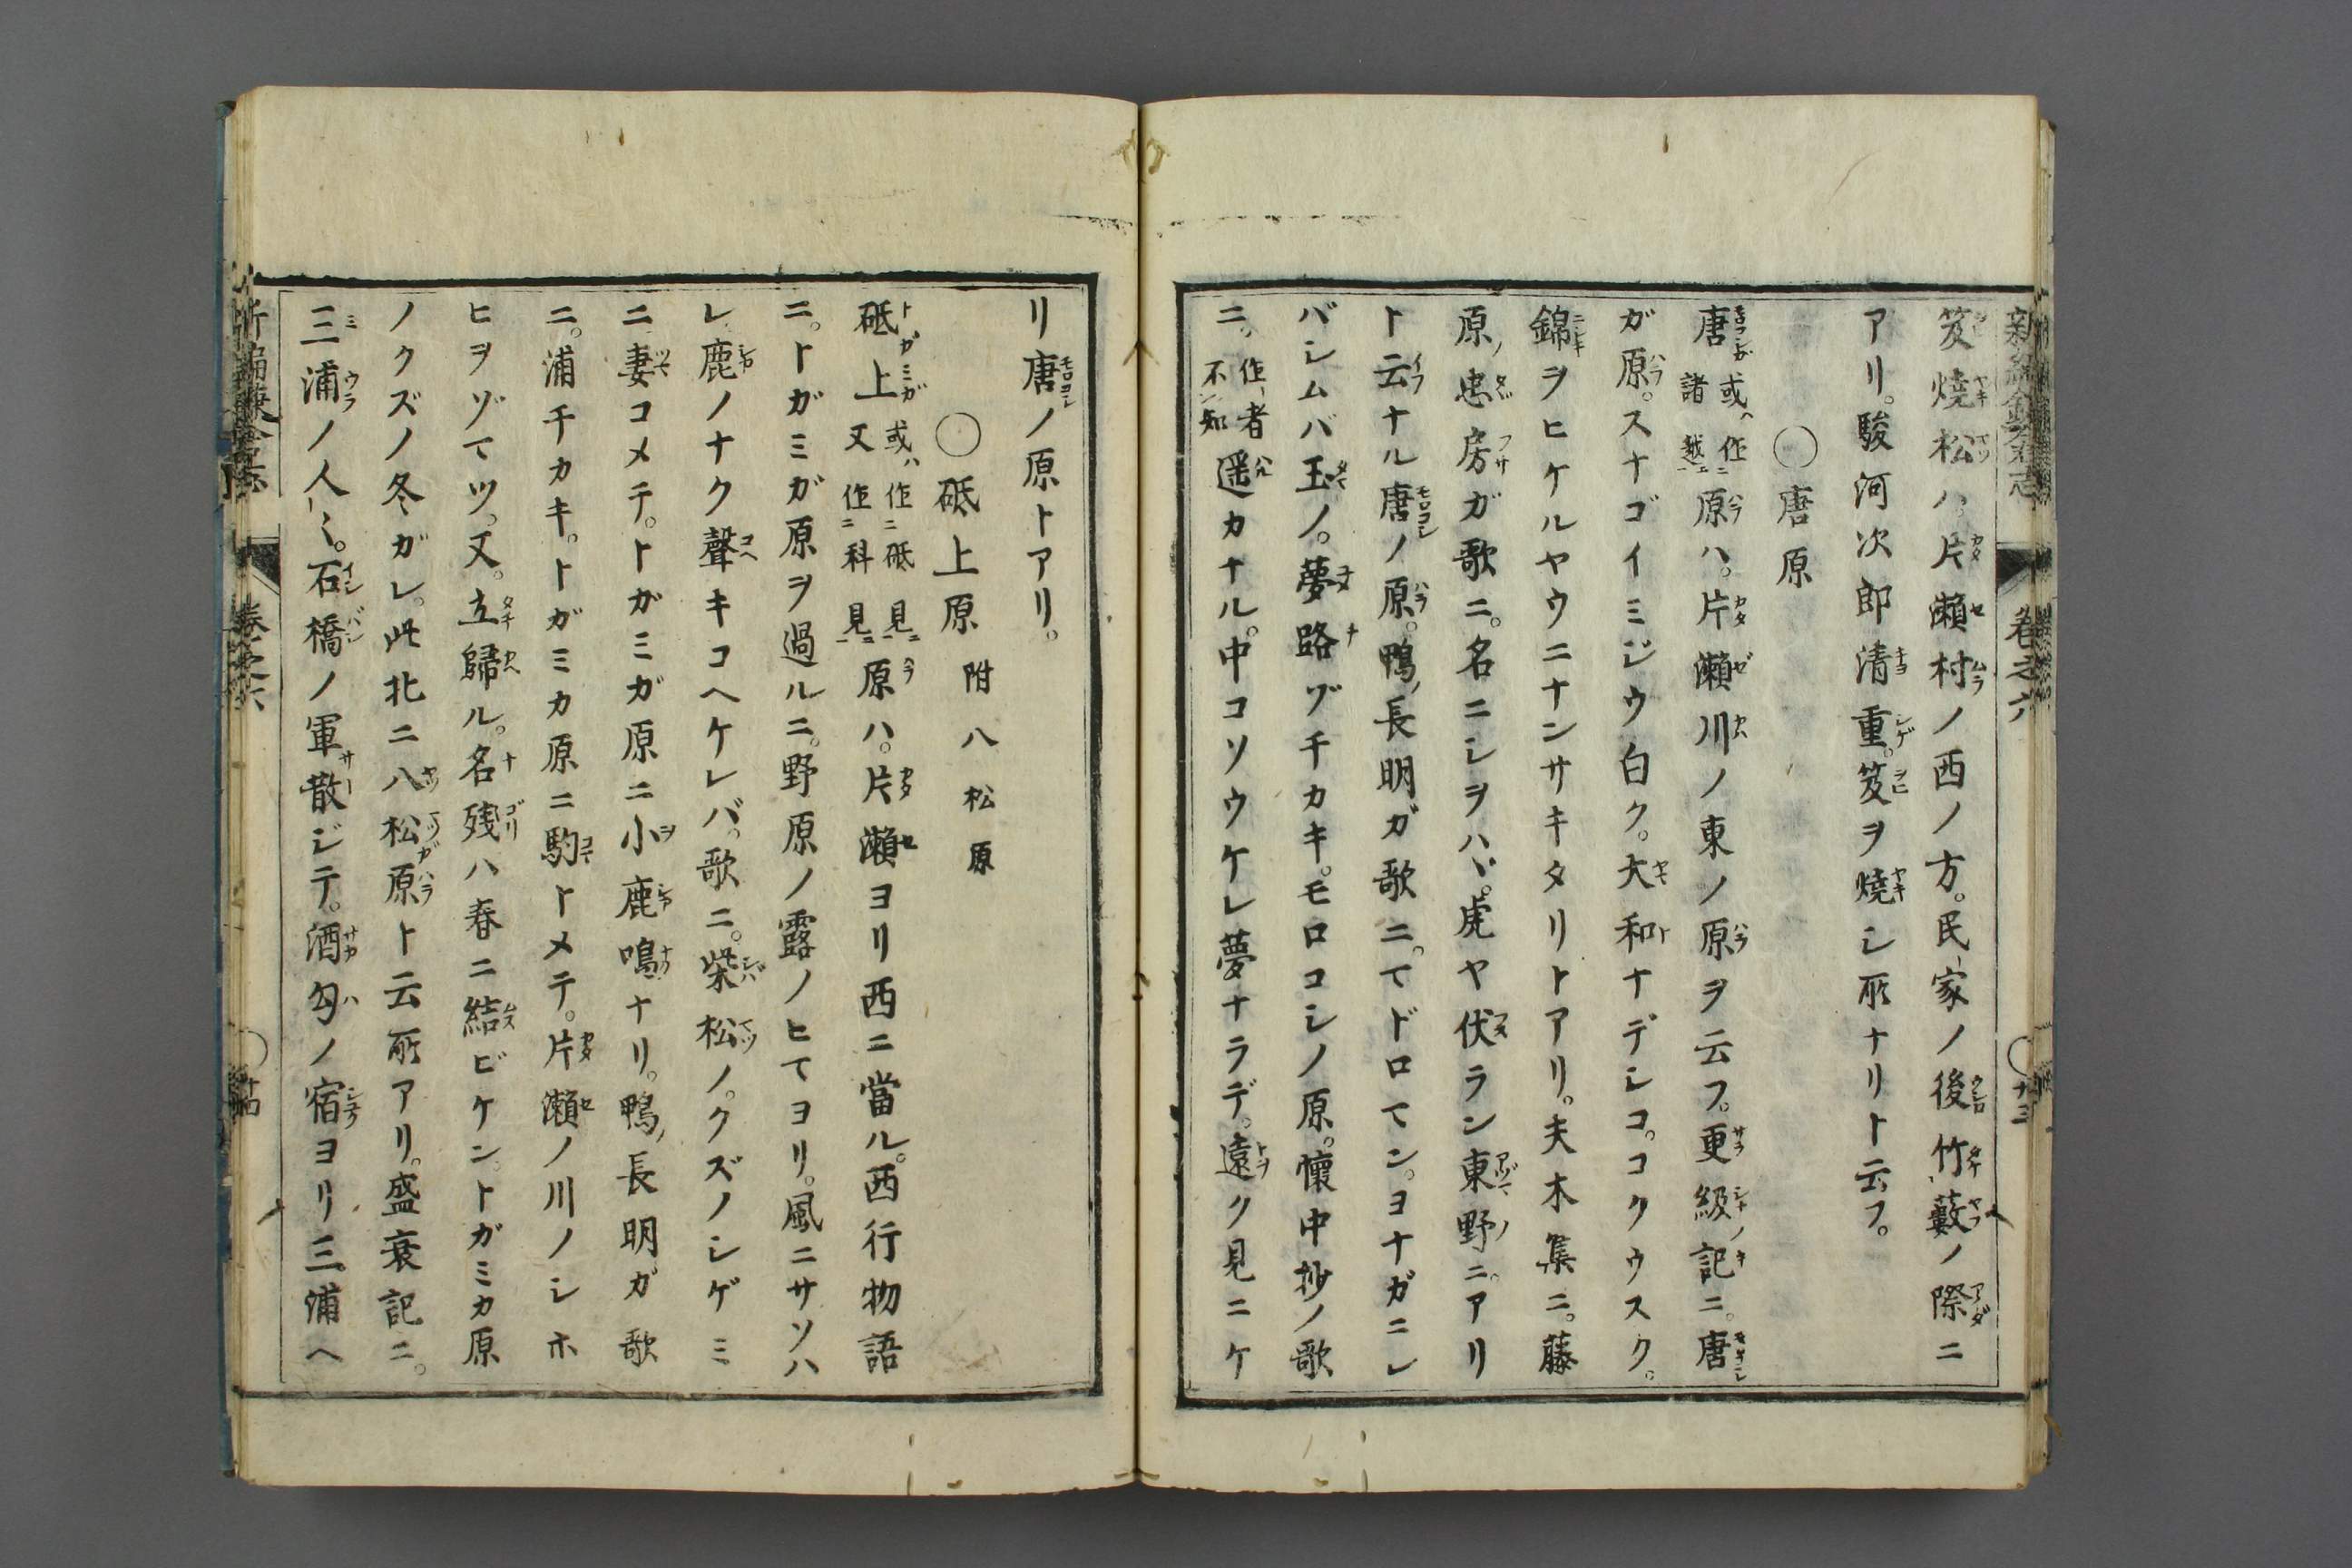 笈燒松ハ、片瀬村ノ西ノ方。民家ノ後竹藪ノ際ニ
アリ。駿河次郎清重。笈ヲ燒シ所ナリト云フ。
〇唐原
唐或ハ作諸越原ハ。片瀬川ノ東ノ原ヲ云フ。更級記ニ。唐
ガ原。スナゴイミジウ白ク。大和ナデシコ。コクウスク。
錦ヲヒケルヤウニナンサキタリトアリ。夫木集ニ。藤
原ノ忠房ガ歌ニ。名ニシヲハヾ。虎ヤ伏ラン東野ニ。アリ
ト云ナル唐ノ原。鴨ノ長明ガ歌ニ。マドロマン。ヨナガニレ
バシムバ玉ノ。夢路ヅチカキ。モロコシノ原。懷中抄ノ歌
ニ。作者不知遥カナル。中コソウケレ夢ナラデ。遠ク見ニケ
リ唐ノ原トアリ。
〇砥上原 附八松原
砥上或ハ作砥見又作科見原ハ。片瀬ヨリ西ニ當ル。西行物語
ニ。トガミガ原ヲ過ルニ。野原ノ露ノヒマヨリ。風ニサソハ
レ鹿ノナク聲キコヘケレバ。歌ニ。柴松ノ。クズノシゲミ
ニ妻コメテ。トガミガ原ニ小鹿鳴ナリ。鴨ノ長明ガ歌
ニ。浦チカキ。トガミカ原ニ駒トメテ。片瀬ノ川ノシホ
ヒヲゾマツ。又。立歸ル。名残ハ春ニ結ビケン。トガミカ原
ノクズノ冬ガレ。此北ニ八松原ト云所アリ。盛衰記ニ。
三浦ノ人々。石橋ノ軍散ジテ。酒匂ノ宿ヨリ三浦ヘ
新編鎌倉志 卷之六 〇十三
新編鎌倉志 卷之六 〇十四